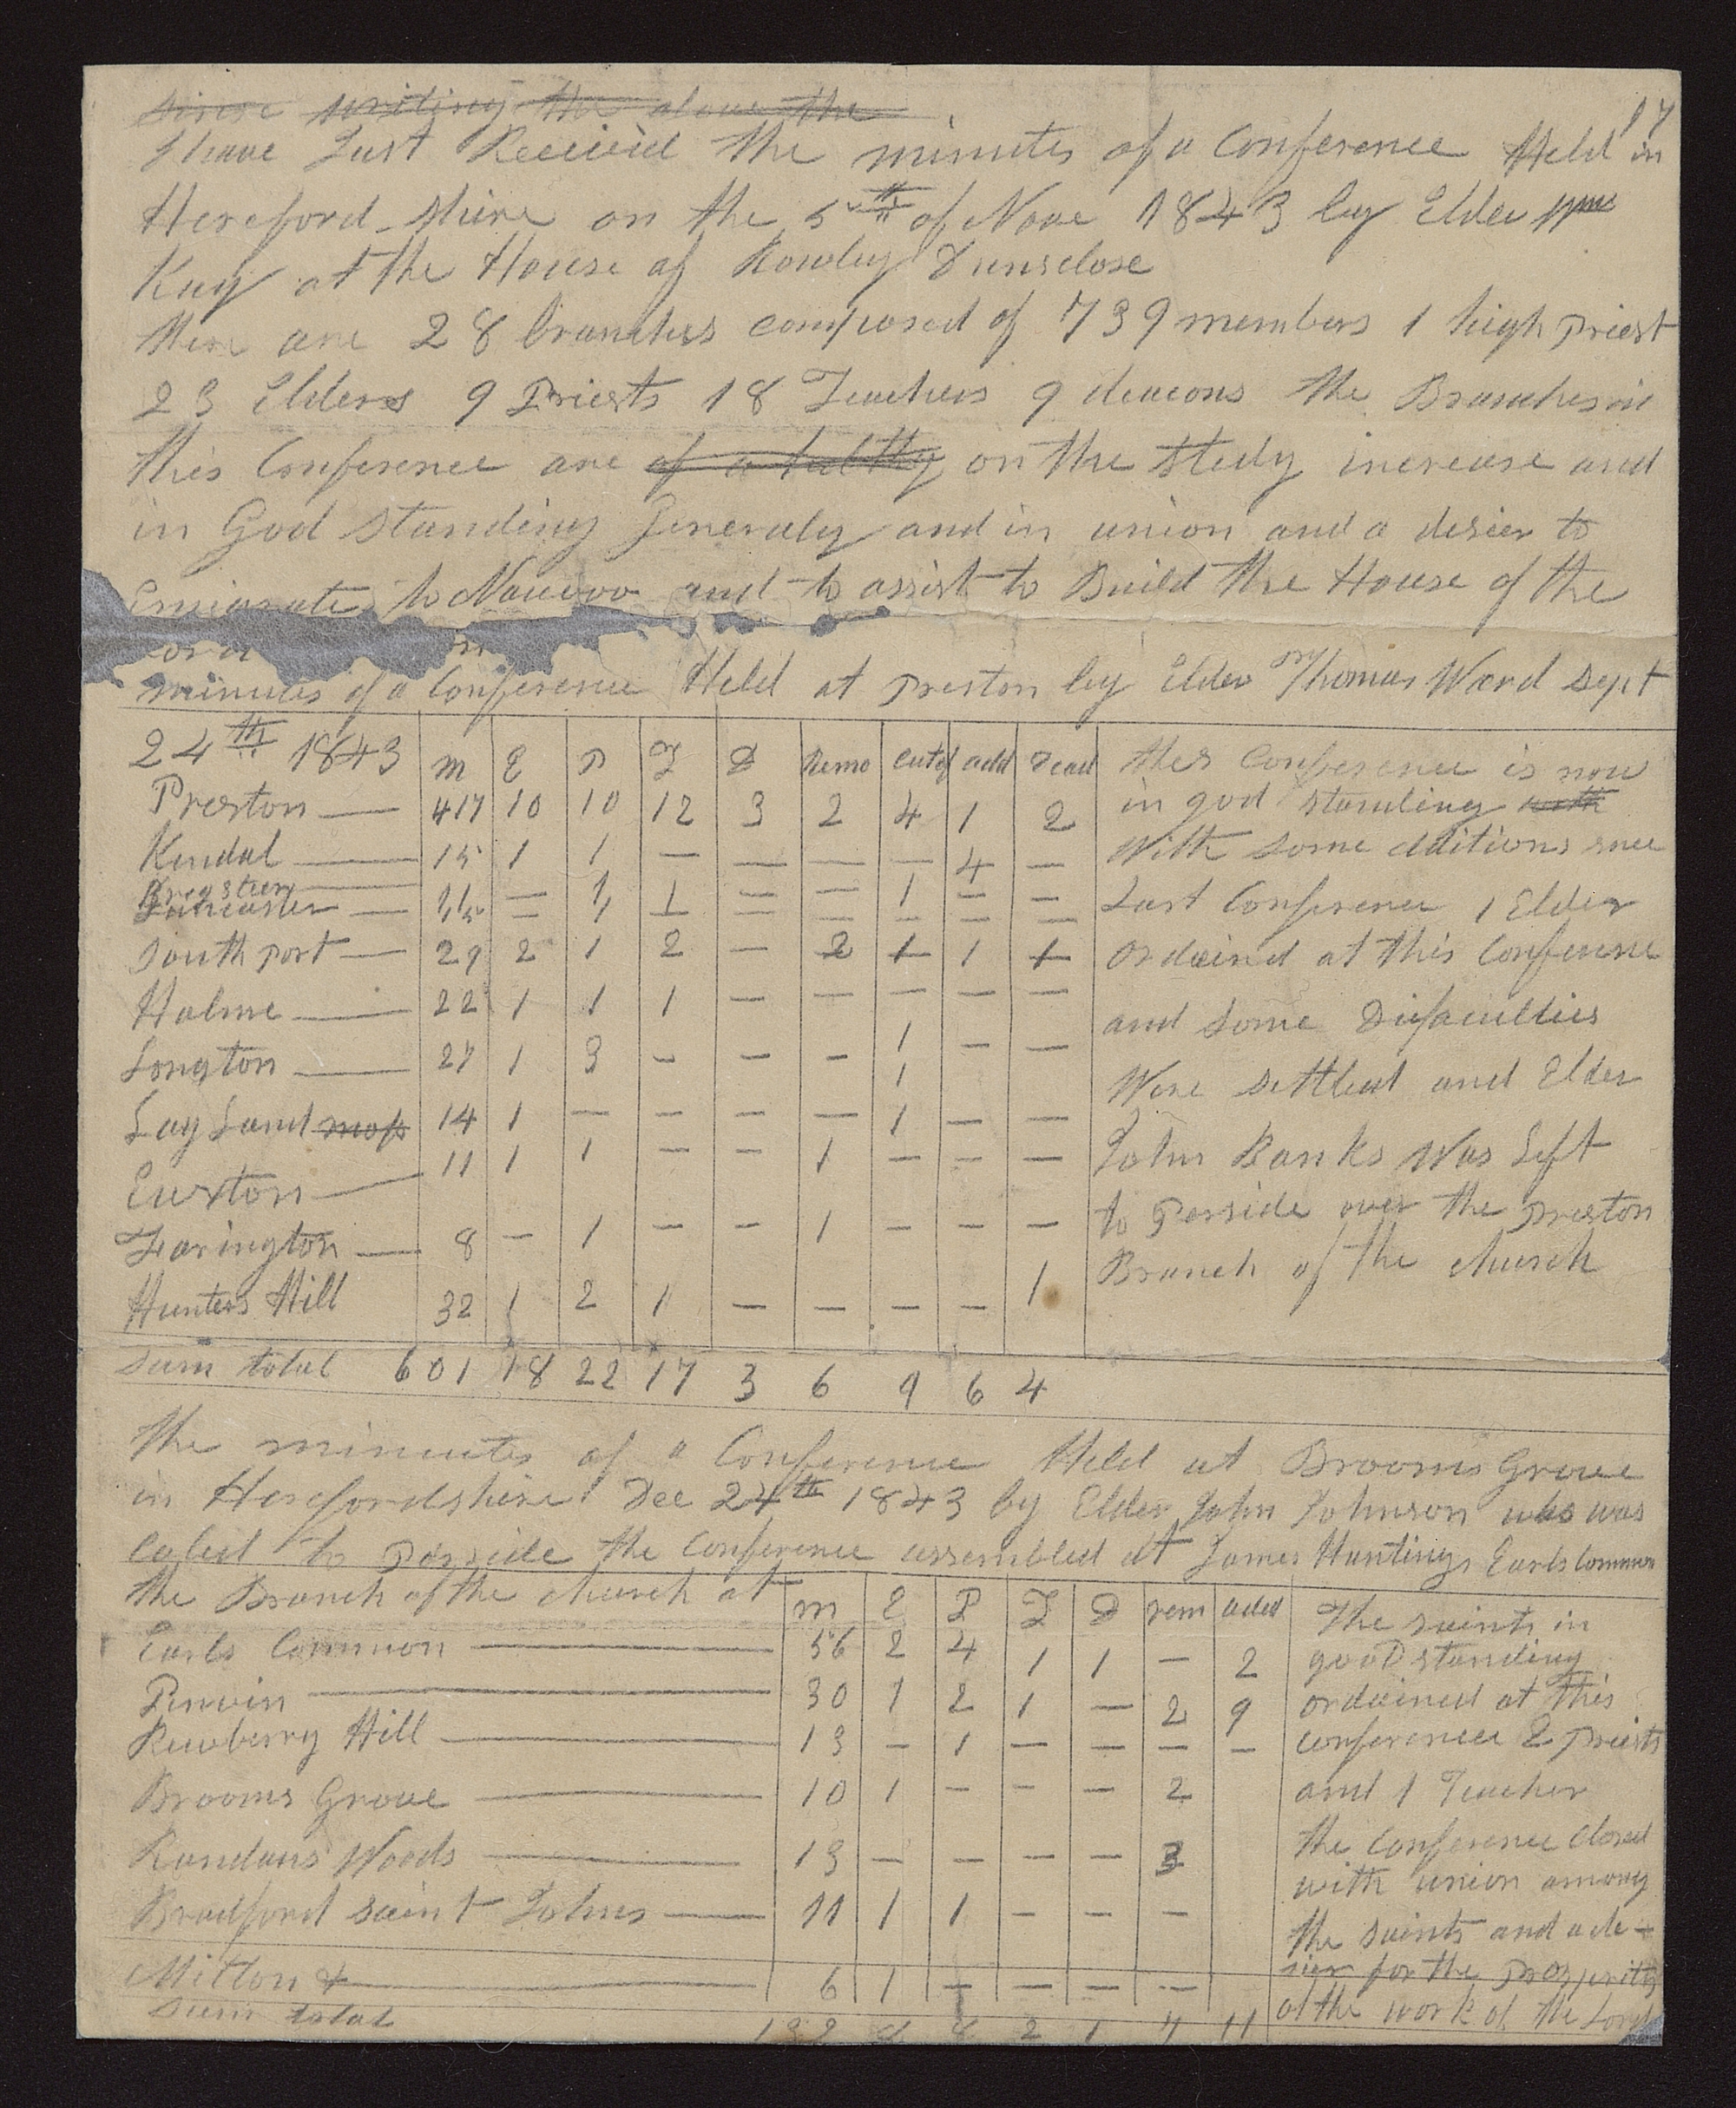 17
since writing the above the
I have Just Receivid the minutes of a Conference Held in
Hereford shire on the 5th of Nove 1843 by Elder Wm
Kay at the House of Rowley
there are 28 branches composed of 739 members 1 high Priest
23 Elders 9 Priests 18 Teachers 9 deacons the Branches in
this Conference are of a on the stedy increase and
in God standing Generaly and in union and a desier to
Emigrate to Nauvoo and to assist to Build the House of the
minutes of a Conference Held at Preston by Elder Thomas Ward Sept
24th 1843 m E P T D Remo cut of add Dead
Preston — 417 10 10 12 3 2 4 1 2
Kendal — 15 1 1 — — — — 4 —
11 — 1 1 — — 1 — —
Lancaster — 15 — 1 — — — — — —
South port — 29 2 1 2 — 2 1 1 1
Holme — 22 1 1 1 — — — — —
Longton — 27 1 3 - - - 1 — —
1
Lay Land moss 14 1 — — — — 1 — —
Euxton — 11 1 1 — — 1 — — —
Farington — 8 — 1 — — 1 — — —
Hunters Hill 32 1 2 1 — — — — 1
Sum total 601 18 22 17 3 6 9 6 4
this Conference is now
in god standing with
With some additions snce
Last Conference 1 Elder
ordaind at this Conference
and some Difaculties
Were settled and Elder
John Banks Was Left
to Preside over the Preston
Branch of the church
The minuets of a Conference Held at Brooms Grove
in Herefordshire Dec 24th 1843 by Elder John Johnson who was
Caled to Preside the Conference assembled at James Huntings Earls Common
the Branch of the church at m E P T D rem aded
Earls Common — 56 2 4 1 1 — 2
Penvin — 30 1 2 1 — 2 9
Rewberry Hill — 13 — 1 — — — —
Brooms Grove — 10 1 - - — 2
Randans Woods — 13 — — — — 3
Bradford saint Johns — 11 1 1 — — —
Milton & — 6 1 — — — —
Sum total 2 1 7 11
The saints in
good standing
ordained at this
conference 2 Priests
and 1 Teacher
the Conference closed
with union among
the saints and a de-
sier for the Prosperity
of the work of the Lord